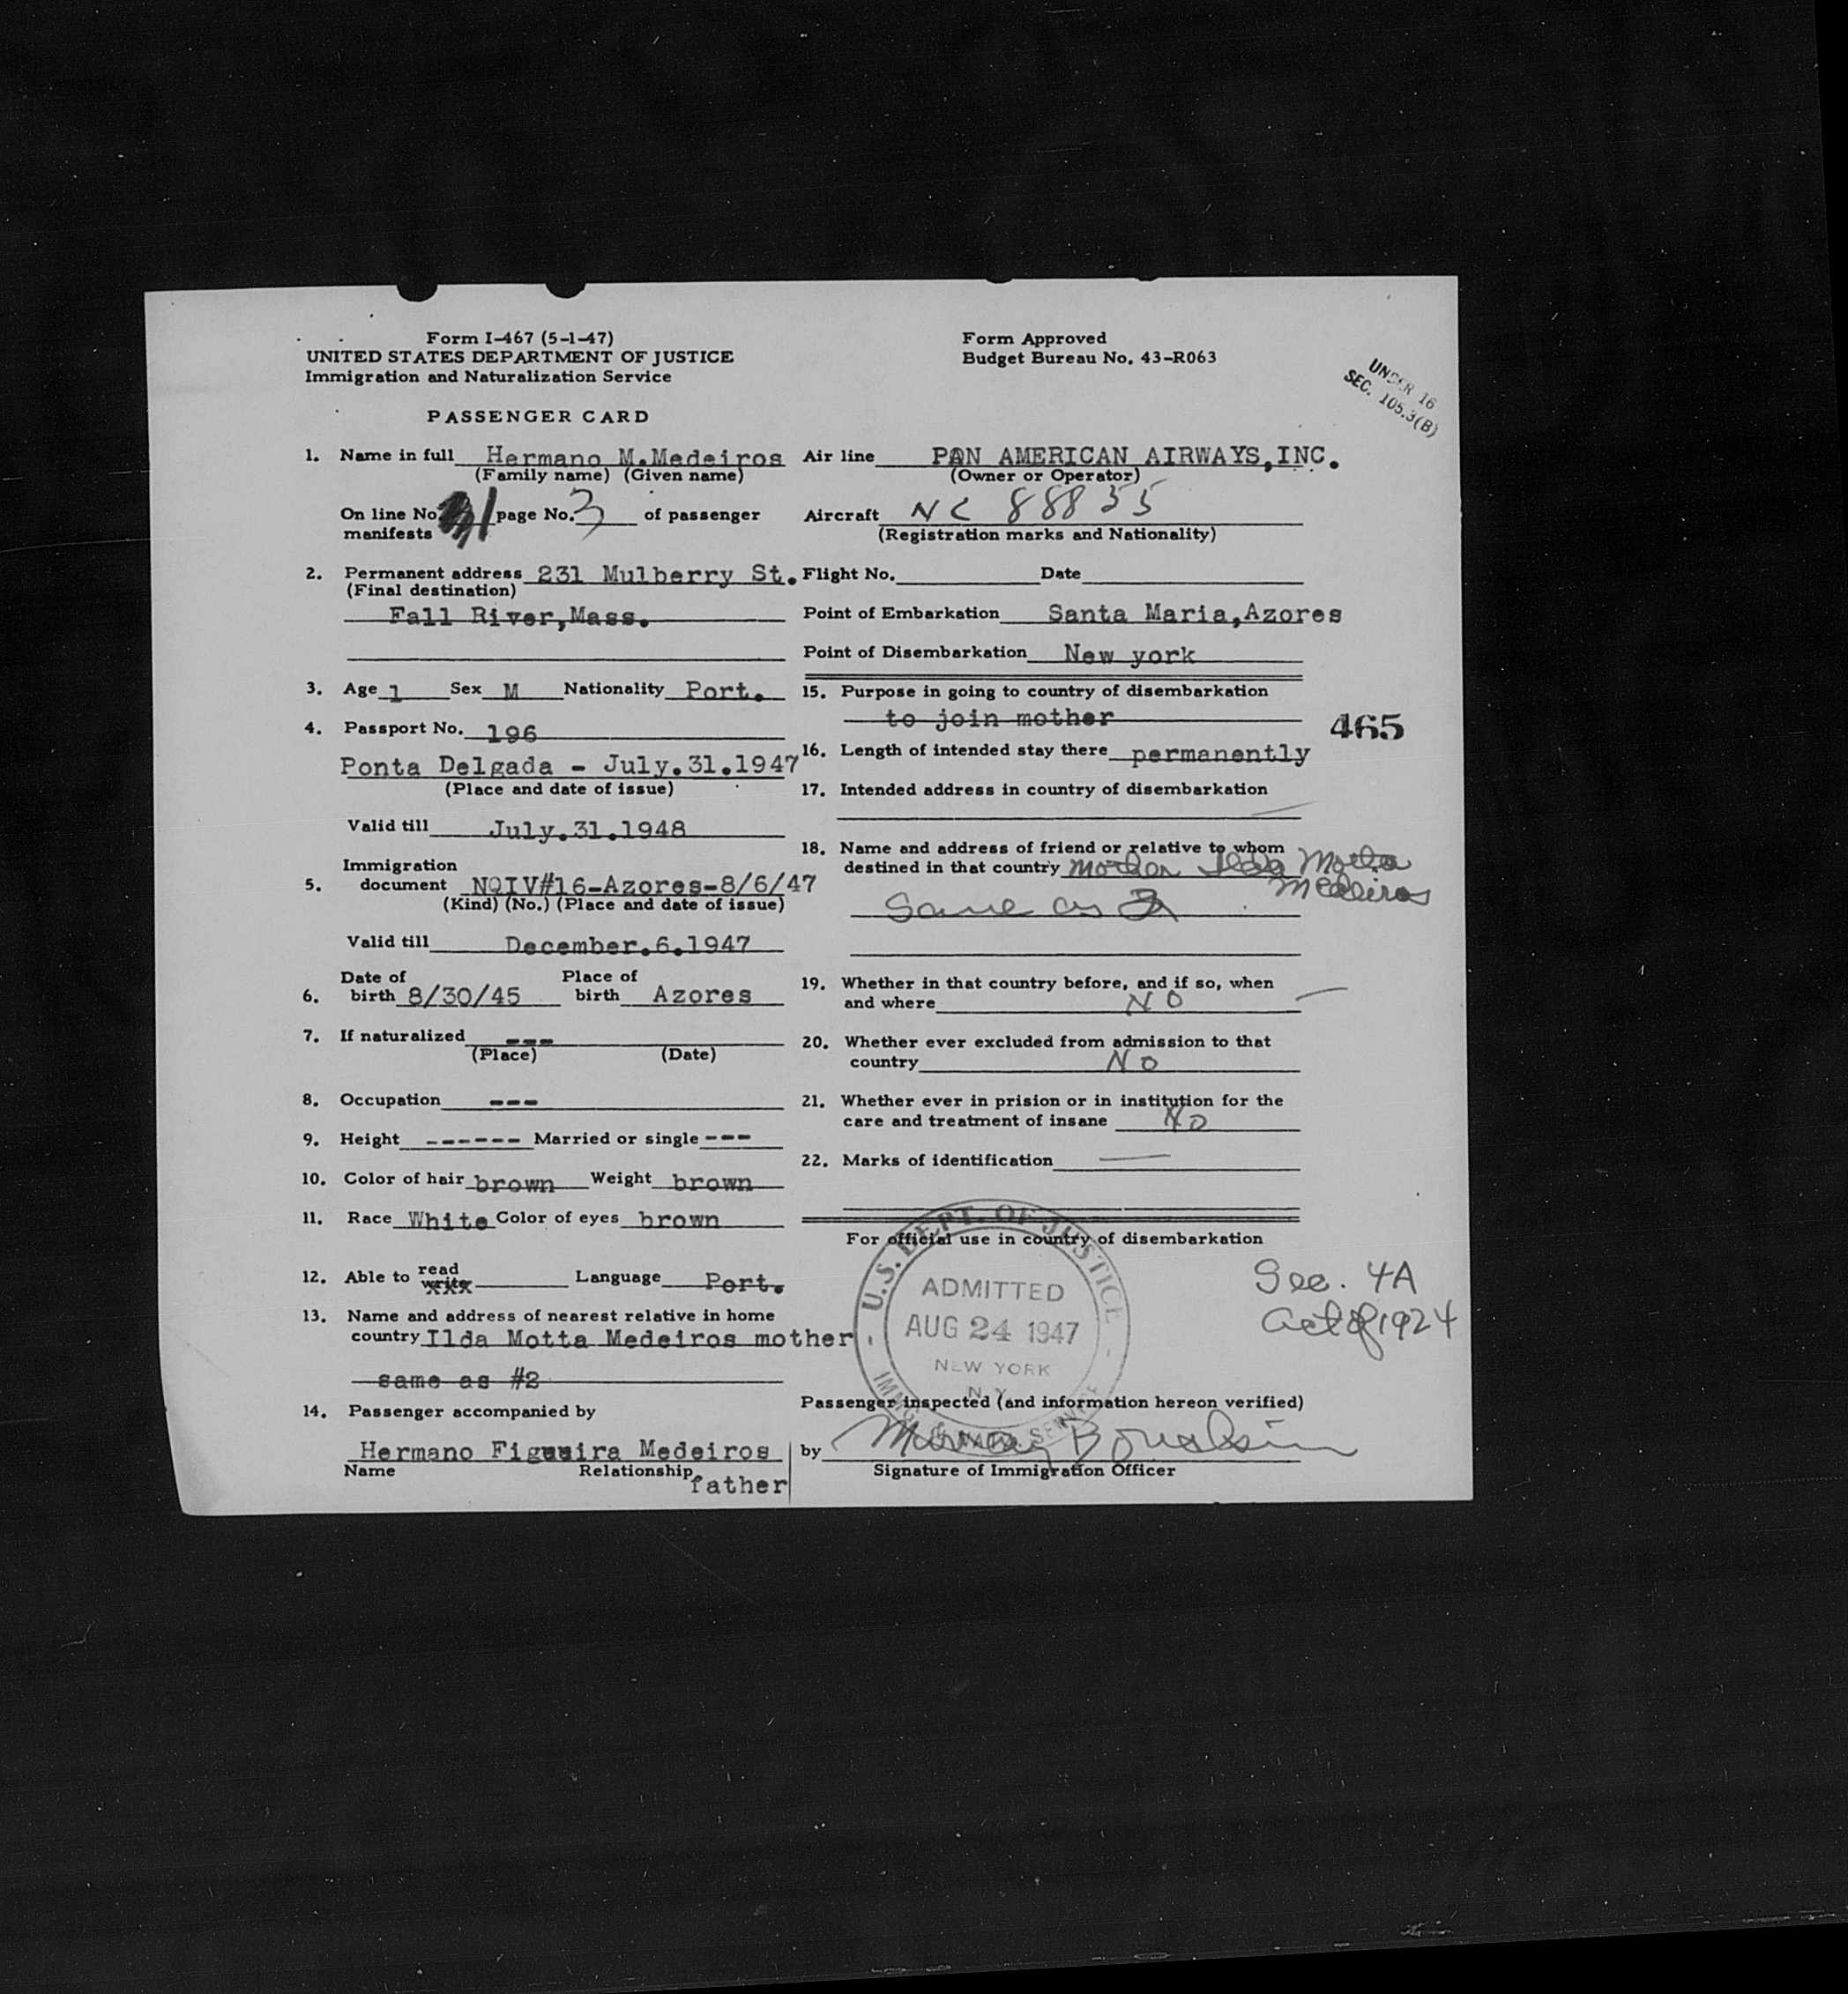 Form I-467 (5-1-47)
UNITED STATES DEPARTMENT OF JUSTICE
Immigration and Naturalization Service
PASSENGER CARD
Form Approved
Budget Bureau No. 43-R063
UNDER 16
SEC. 105.3(B)
1. Name in full Hermano M.Medeiros
(Family name) (Given name)
On line No. 1 page No. 3 of passenger
manifests
2. Permanent address 231 Mulberry St.
(Final destination)
Fall River,Mass.
3. Age 1 Sex M Nationality Port.
4. Passport No. 196
Ponta Delgada - July.31.1947
(Place and date of issue)
Valid till July.31.1948
Immigration
5. document NQIV#16-Azores-8/6/47
(Kind) (No.) (Place and date of issue)
Valid till December.6.1947
Date of Place of
6. birth 8/30/45 birth Azores
7. If naturalized ---
(Place) (Date)
8. Occupation ---
9. Height ------ Married or single ---
10. Color of hair brown Weight brown
11. Race White Color of eyes brown
12. Able to read
write Language Port.
13. Name and address of nearest relative in home
country Ilda Motta Medeiros mother
same as #2
14. Passenger accompanied by
Hermano Figueira Medeiros
Name Relationship
father
Air line PAN AMERICAN AIRWAYS,INC.
(Owner or Operator)
Aircraft NC 88855
(Registration marks and Nationality)
Flight No. Date
Point of Embarkation Santa Maria,Azores
Point of Disembarkation New york
15. Purpose in going to country of disembarkation
to join mother
465
16. Length of intended stay there permanently
17. Intended address in country of disembarkation
18. Name and address of friend or relative to whom
destined in that country Mother Ilda Motta
Medeiros
Same as 2
19. Whether in that country before, and if so, when
and where NO
20. Whether ever excluded from admission to that
country No
21. Whether ever in prision or in institution for the
care and treatment of insane No
22. Marks of identification
For official use in country of disembarkation
U.S. DEPT. OF JUSTICE
ADMITTED
AUG 24 1947
NEW YORK
N.Y.
IMMIG. & NATZ. SERVICE
Sec. 4A
Act of 1924
Passenger inspected (and information hereon verified)
by Murray
Signature of Immigration Officer